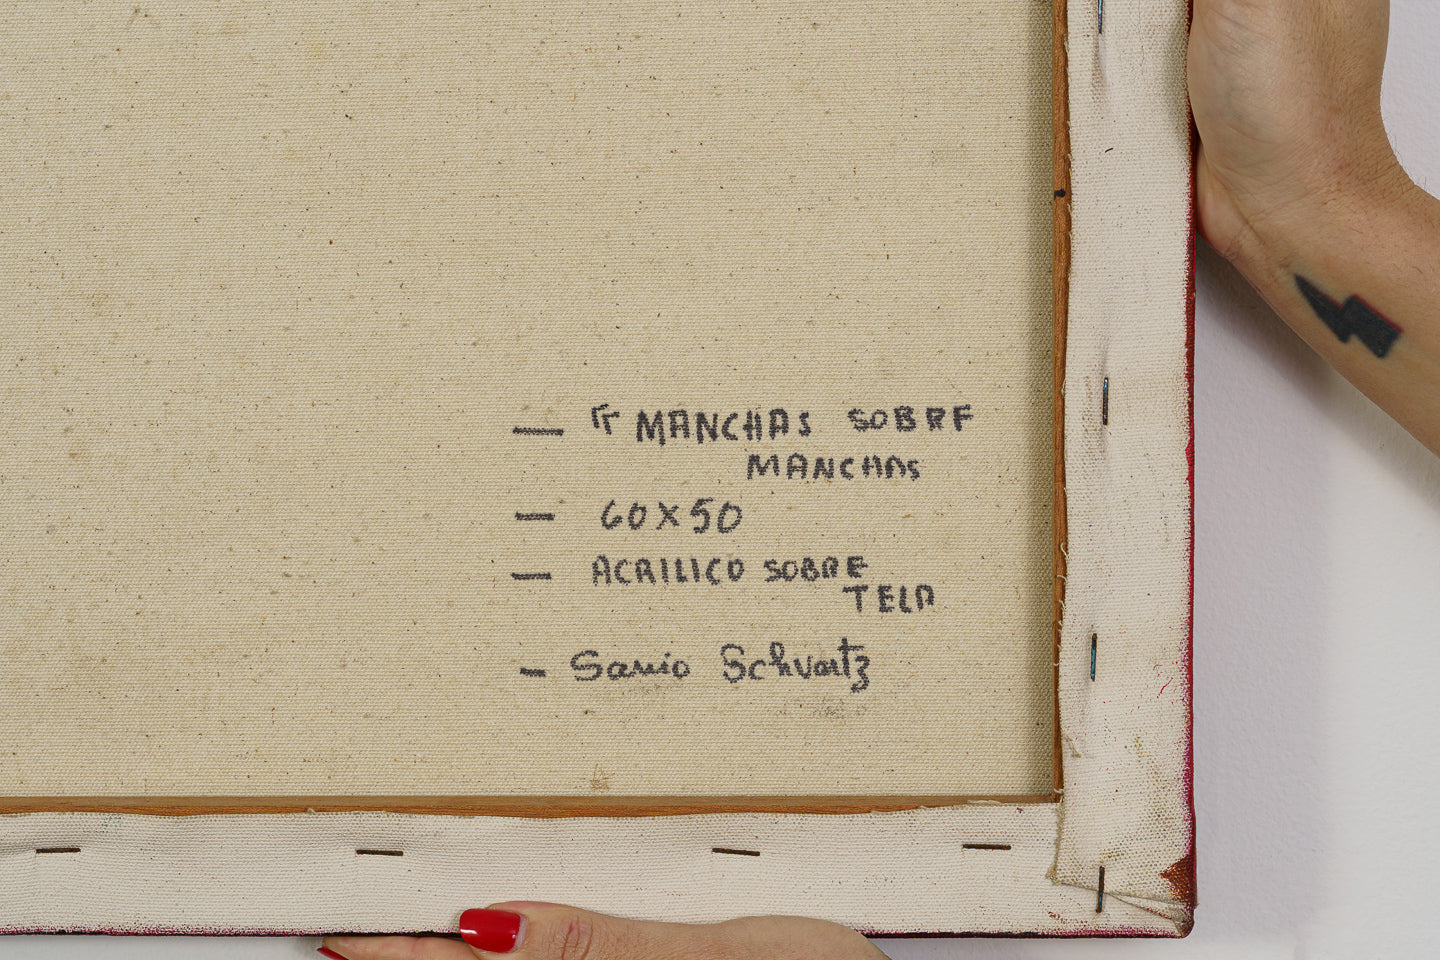 — " MANCHAS SOBRE
MANCHAS
— 60x50
— ACRILICO SOBRE
TELA
- Schvartz